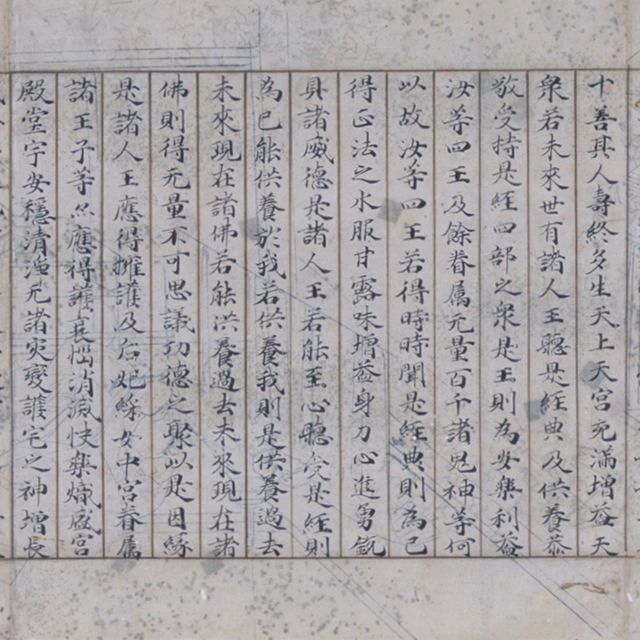 十善其人壽終多生天上天宮充滿增益天
衆若未來世有諸人王聽是経典及供養恭
敬受持是経四部之衆是王則為安樂利益
汝等四王及餘眷属无量百千諸鬼神等何
以故汝等四王若得時時聞是経典則為已
得正法之水服甘露味增益身力心進勇銳
具諸威德是諸人王若能至心聽受是経則
為已能供養於我若供養我則是供養過去
未來現在諸佛若能供養過去未來現在諸
佛則得无量不可思議功德之聚以是因緣
是諸人王應得擁護及后妃婇女中宮眷属
諸王子等亦應得護衰惱消滅快樂熾盛宮
殿堂宇安穩清淨无諸灾變護宅之神增長